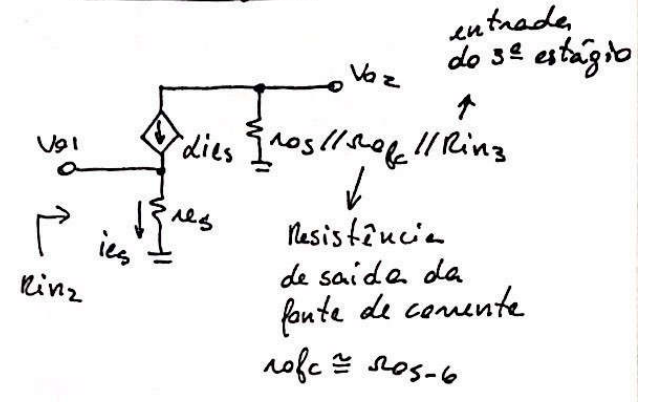 entrada
do 3º estágio
Vo2
Vo1
αie5
ro5//rofc//Rin3
ie5
re5
Rin2
Resistência
de saída da
fonte de corrente
rofc ≅ ro5-6